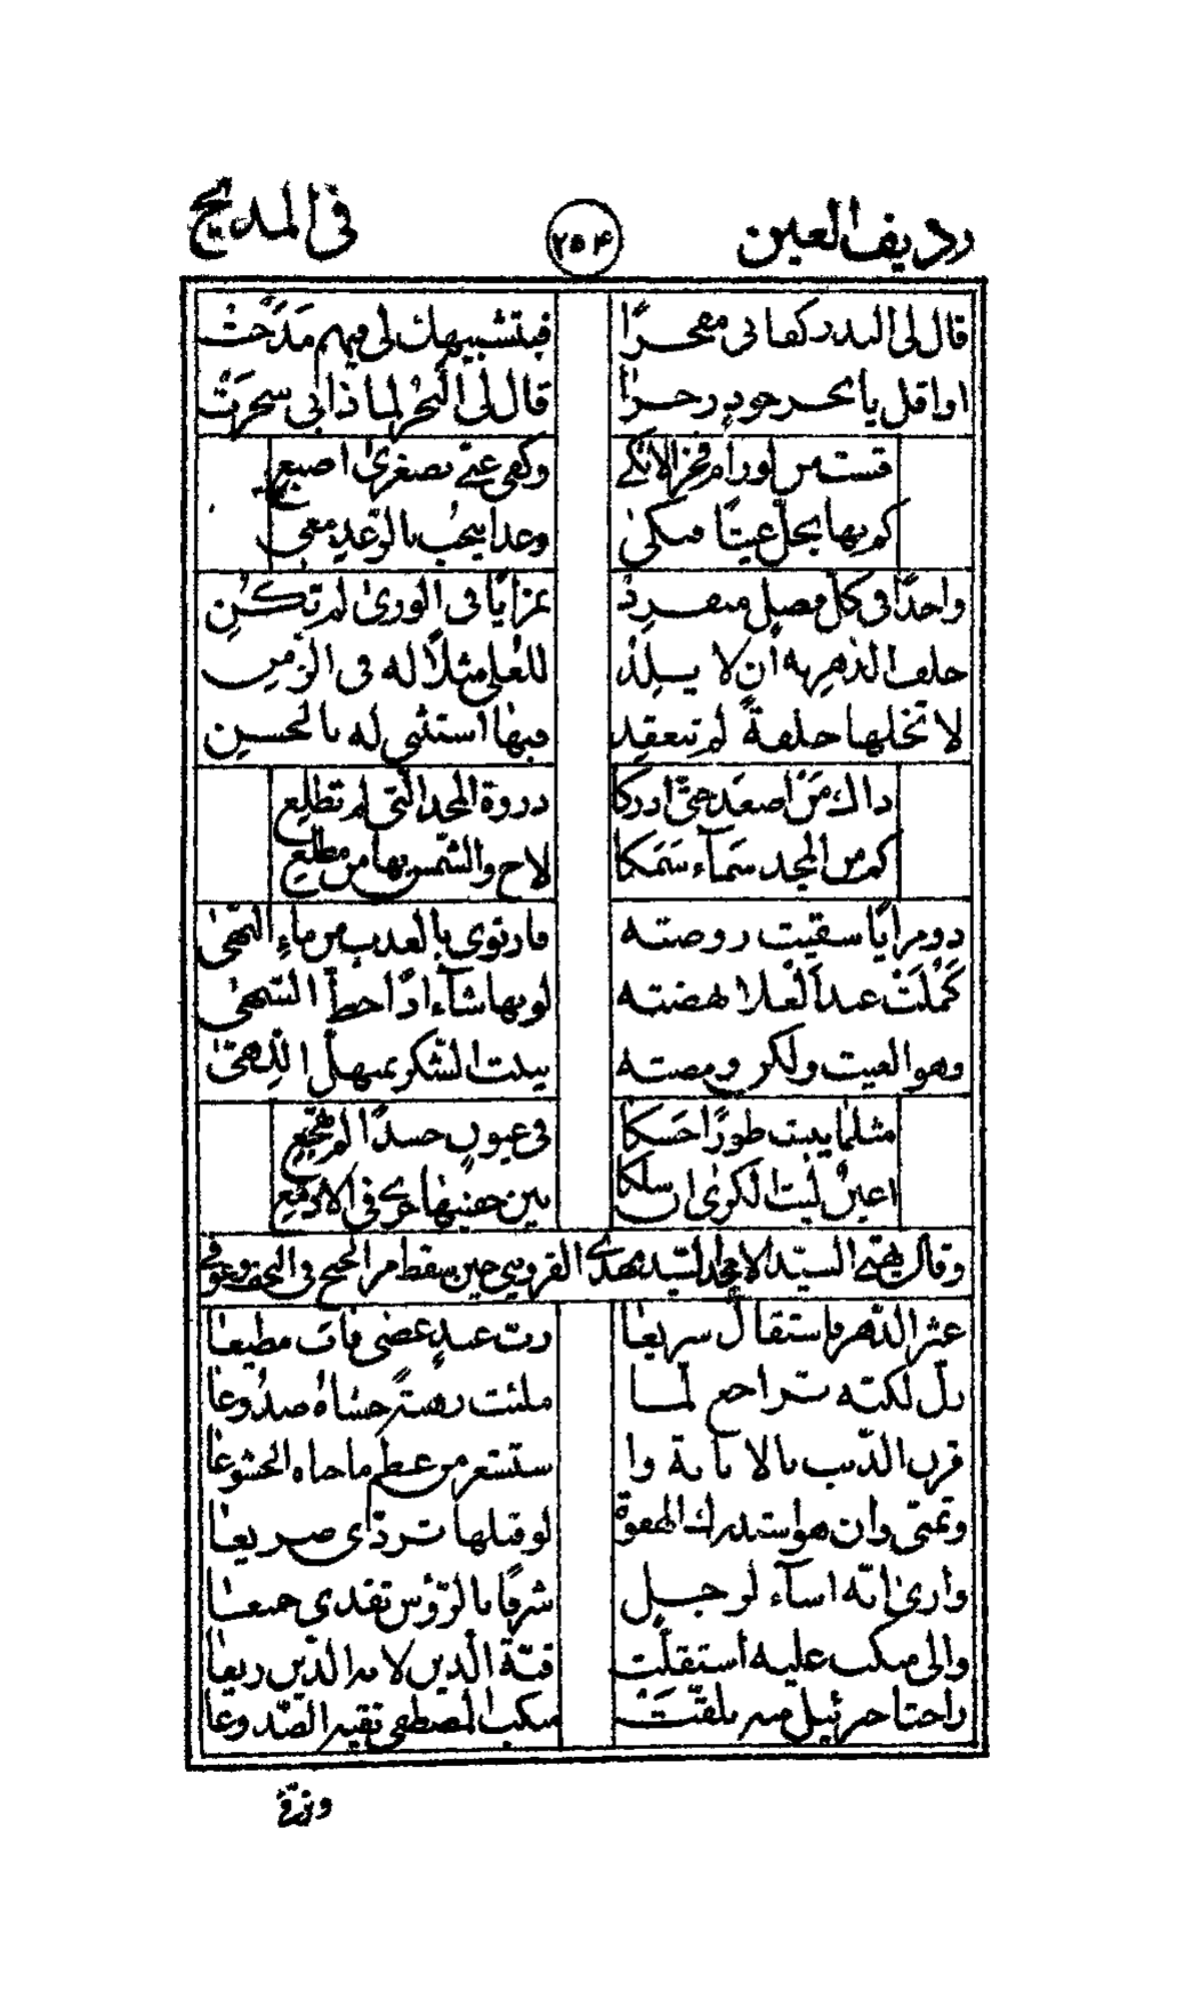 رديف العين ٢٥٤ في المديح
قال لى البدر كفانى مفخرًا فبتشبيهك لى فيهم مَدَحْتَ
او اقل يا بحر جودٍ زخرا قال لى البحر لماذا بى سخرت
قست من لو رام فخر الاتكى وكفى عنّى بصغرى اصبع
كم بها بجلّ غيثًا فبكى وغدا ينحب بالرّعد معى
واحدًا فى كل فصل منفرد بمزايًا فى الورى لم تكن
حلف الدهر به أن لا يلد للعلى مثلًا له فى الزمن
لا تخلها حلفة لم تنعقد فبها استثنى له بالحسن
ذاك من اصعد حتى ادركا ذروة المجد التى لم تطلع
كم من المجد سَمآء سَمَكا لاح والشمس بها من مطلع
ذو مزايًا سقيت روضته فارتوى بالعذب من ماء النهى
كَمُلَتْ عبد العلا نهضته لو بها شآء اذًا حطّ السّهى
وهو الغيث ولكن ومضته ببلت الشكر بمنهلّ اللهى
مثلما يبيت طورًا حَسَكا فى عيون حسدًا لم تهجع
اعين ليت الكرى ان سلكا بين جفنيها جرى فى الادمع
وقال يهنى السيد الامجد السيد مهدى القزوينى حين سقط من المحمل فى النجف وعوفى
عثر الدهر فاستقال سريعا ربّ عبدٍ عصى فآب مطيعا
بل لكبته تراحم لما ملئت رهبة حشاه صدوعا
قرن الذنب بالانابة وا ستشعر من عظم ما جناه الخشوعا
وتمنى وان هو استدرك الهفوة لو قبلها تردّى صريعا
وارى انّه اسآء لرجل شرفًا بالرؤس تفدى جميعا
والى منكب عليه استقلّت قبّة الدين لا مر الدين ريعا
راحتا جبرئيل منه تلقّت منكب المصطفى تقيه الصّدوعا